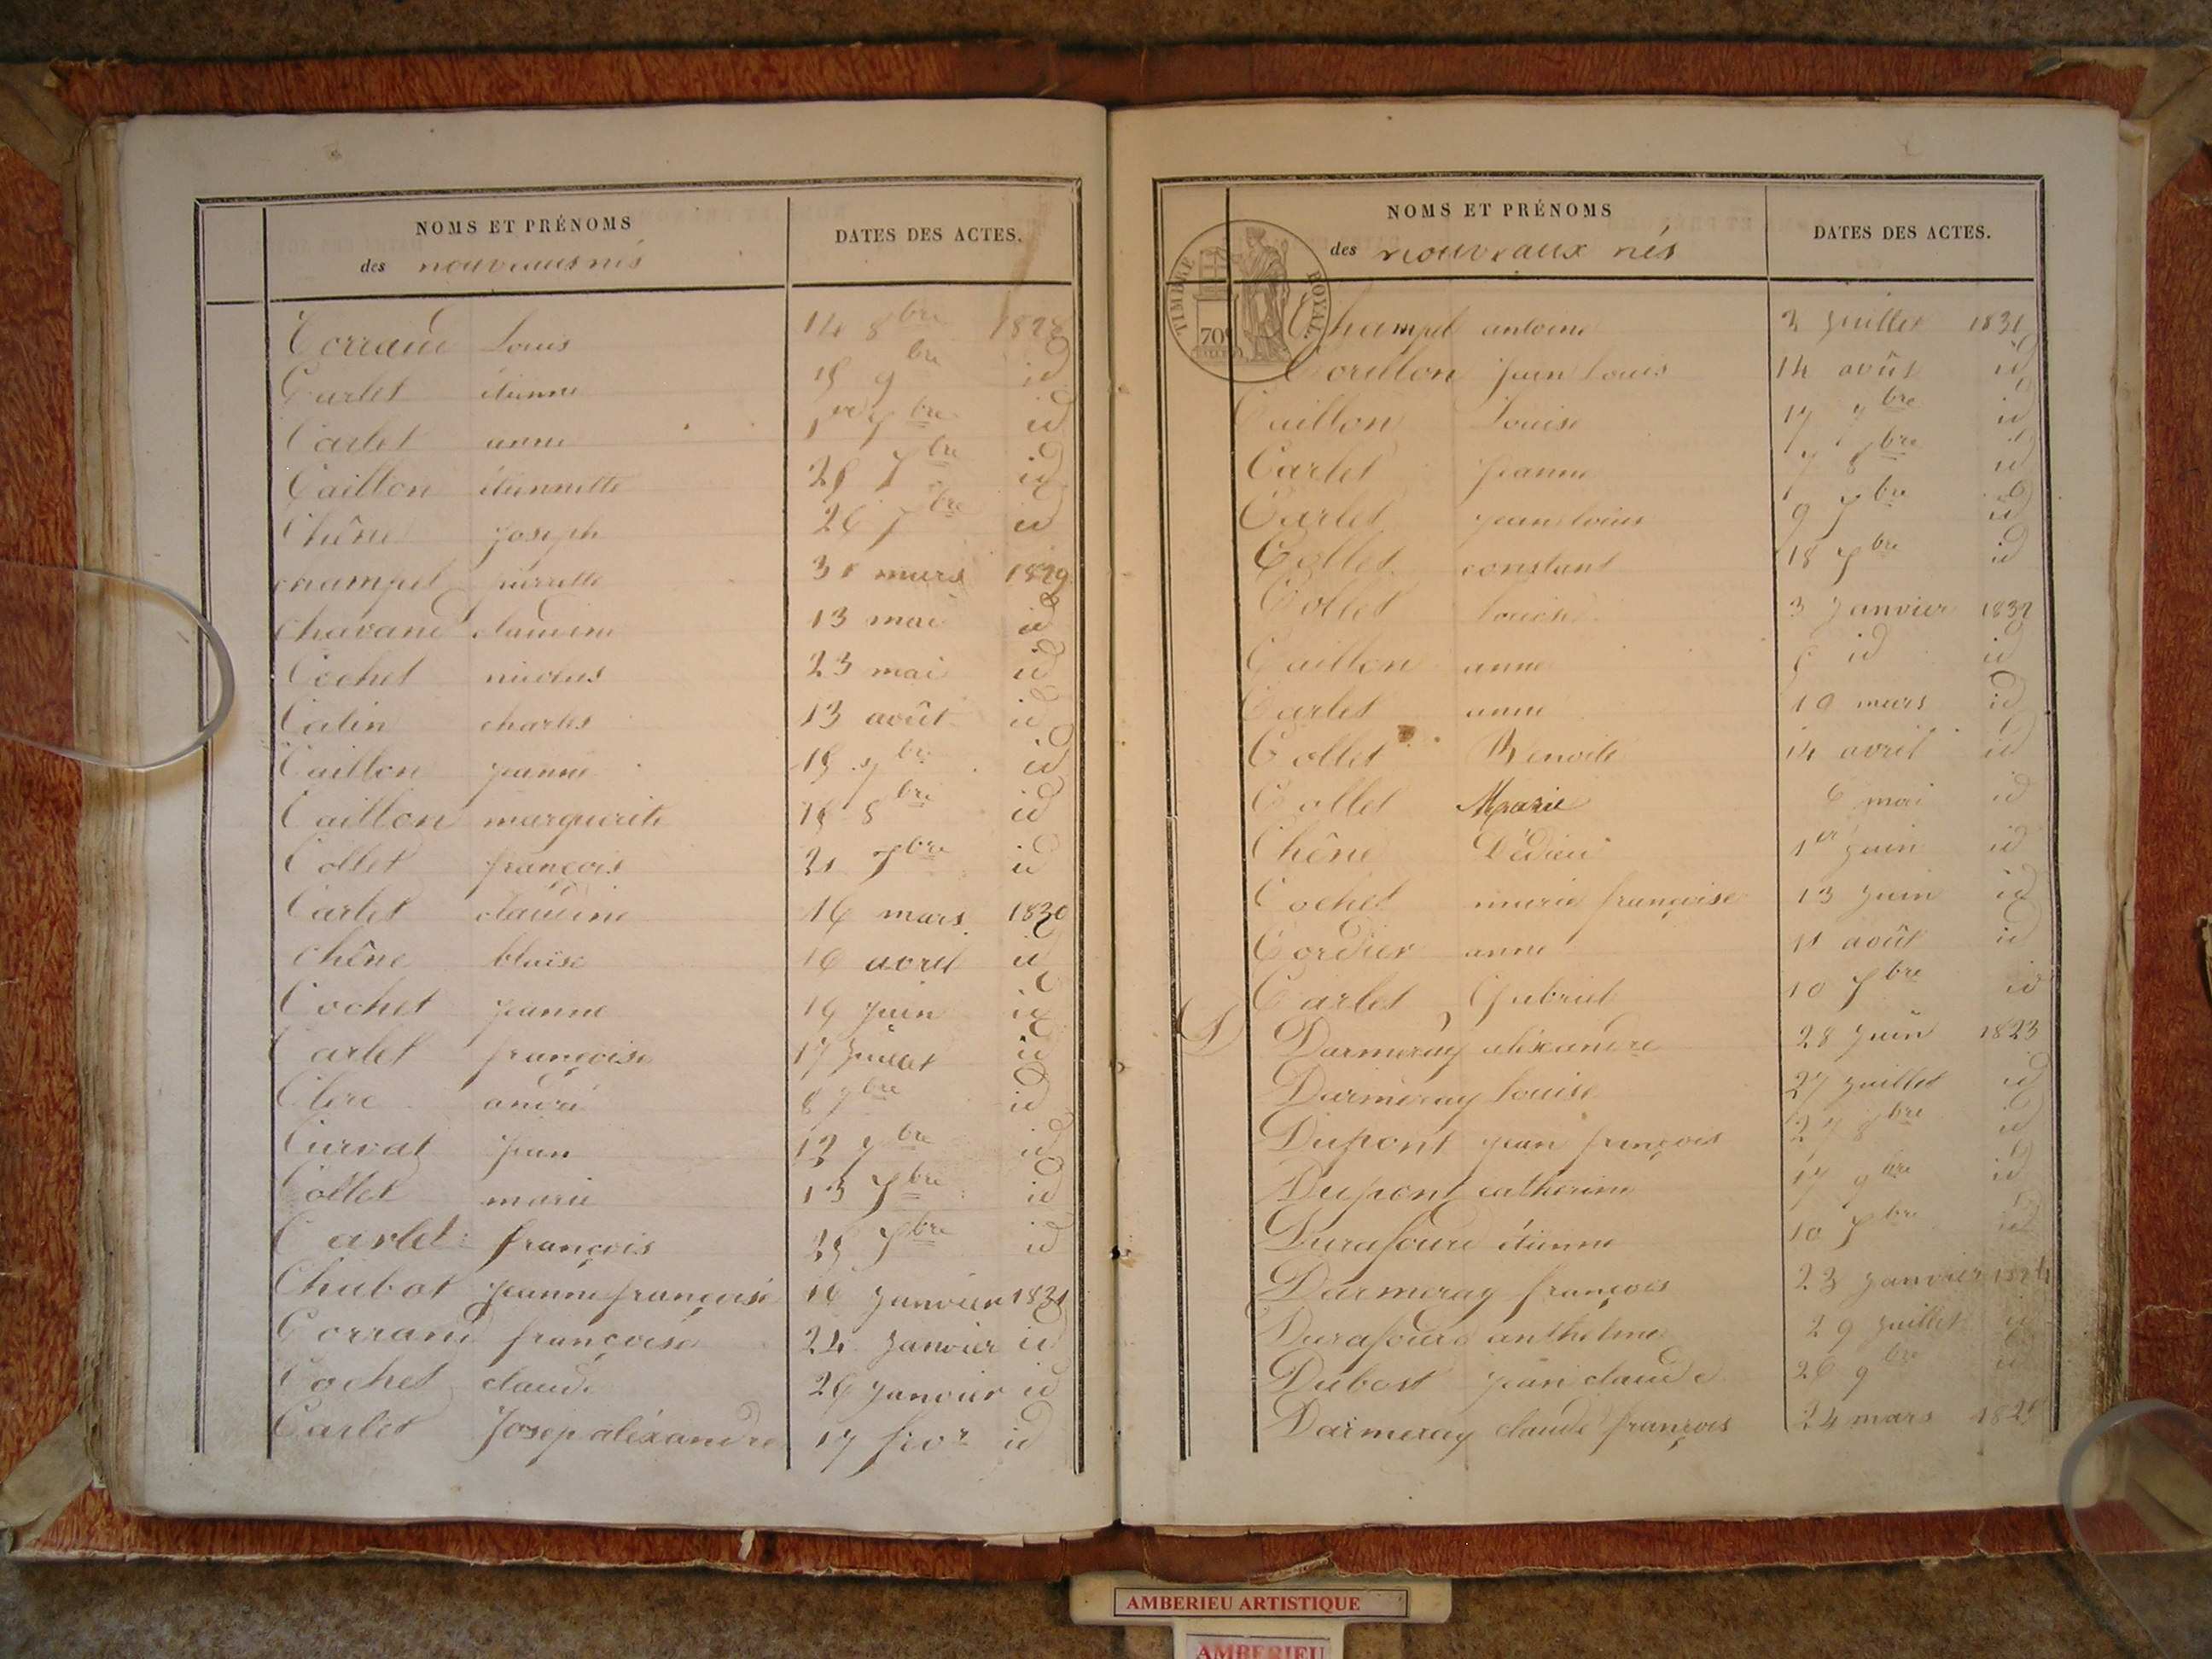 NOMS ET PRÉNOMS
DATES DES ACTES.
des nouveaux nés
Corrand Louis 14 8bre 1828
Carlet étienne 15 9bre id
Carlet anne 1er 7bre id
Caillon étiennette 25 7bre id
Chêne Joseph 26 7bre id
champel pierrette 31 mars 1829
chavand claudine 13 mai id
Cochet nicolas 23 mai id
Catin charles 13 août id
Caillon jeanne 15 9bre id
Caillon marguerite 15 8bre id
Collet françois 21 7bre id
Carlet claudine 16 mars 1830
chêne blaise 16 avril id
Cochet jeanne 19 juin id
Carlet françoise 17 juillet id
Clerc andré 8 7bre id
Curvat jean 12 9bre id
Collet marie 13 7bre id
Carlet françois 25 7bre id
Chabot jeanne françoise 16 janvier 1831
Corrand françoise 24 janvier id
Cochet claude 29 janvier id
Carlet Josep aléxandre 17 févr id
NOMS ET PRÉNOMS
DATES DES ACTES.
des nouveaux nés
TIMBRE ROYAL
70c
Champel antoine 2 juillet 1831
Corillon jean Louis 14 août id
Caillon Louise 17 9bre id
Carlet jeanne 7 8bre id
Carlet jean louis 9 7bre id
Collet constant 18 7bre id
Collet louise 3 Janvier 1832
Caillon anne id id
Carlet anne 10 mars id
Collet Benoite 14 avril id
Collet Marie 6 mai id
Chêne 1er juin id
Cochet marie françoise 13 juin id
Cordier anne 11 août id
Carlet Gabriel 10 7bre id
D Darmeray aléxandre 28 juin 1823
Darmeray louise 27 juillet id
Dupont jean françois 27 8bre id
Dupont catherine 17 9bre id
Durafour étienne 10 7bre id
Darmeray françois 23 janvier 1824
Durafour anthelme 29 juillet id
Dubost jean claude 26 9bre id
Darmeray claude françois 24 mars 1825
AMBERIEU ARTISTIQUE
AMBERIEU